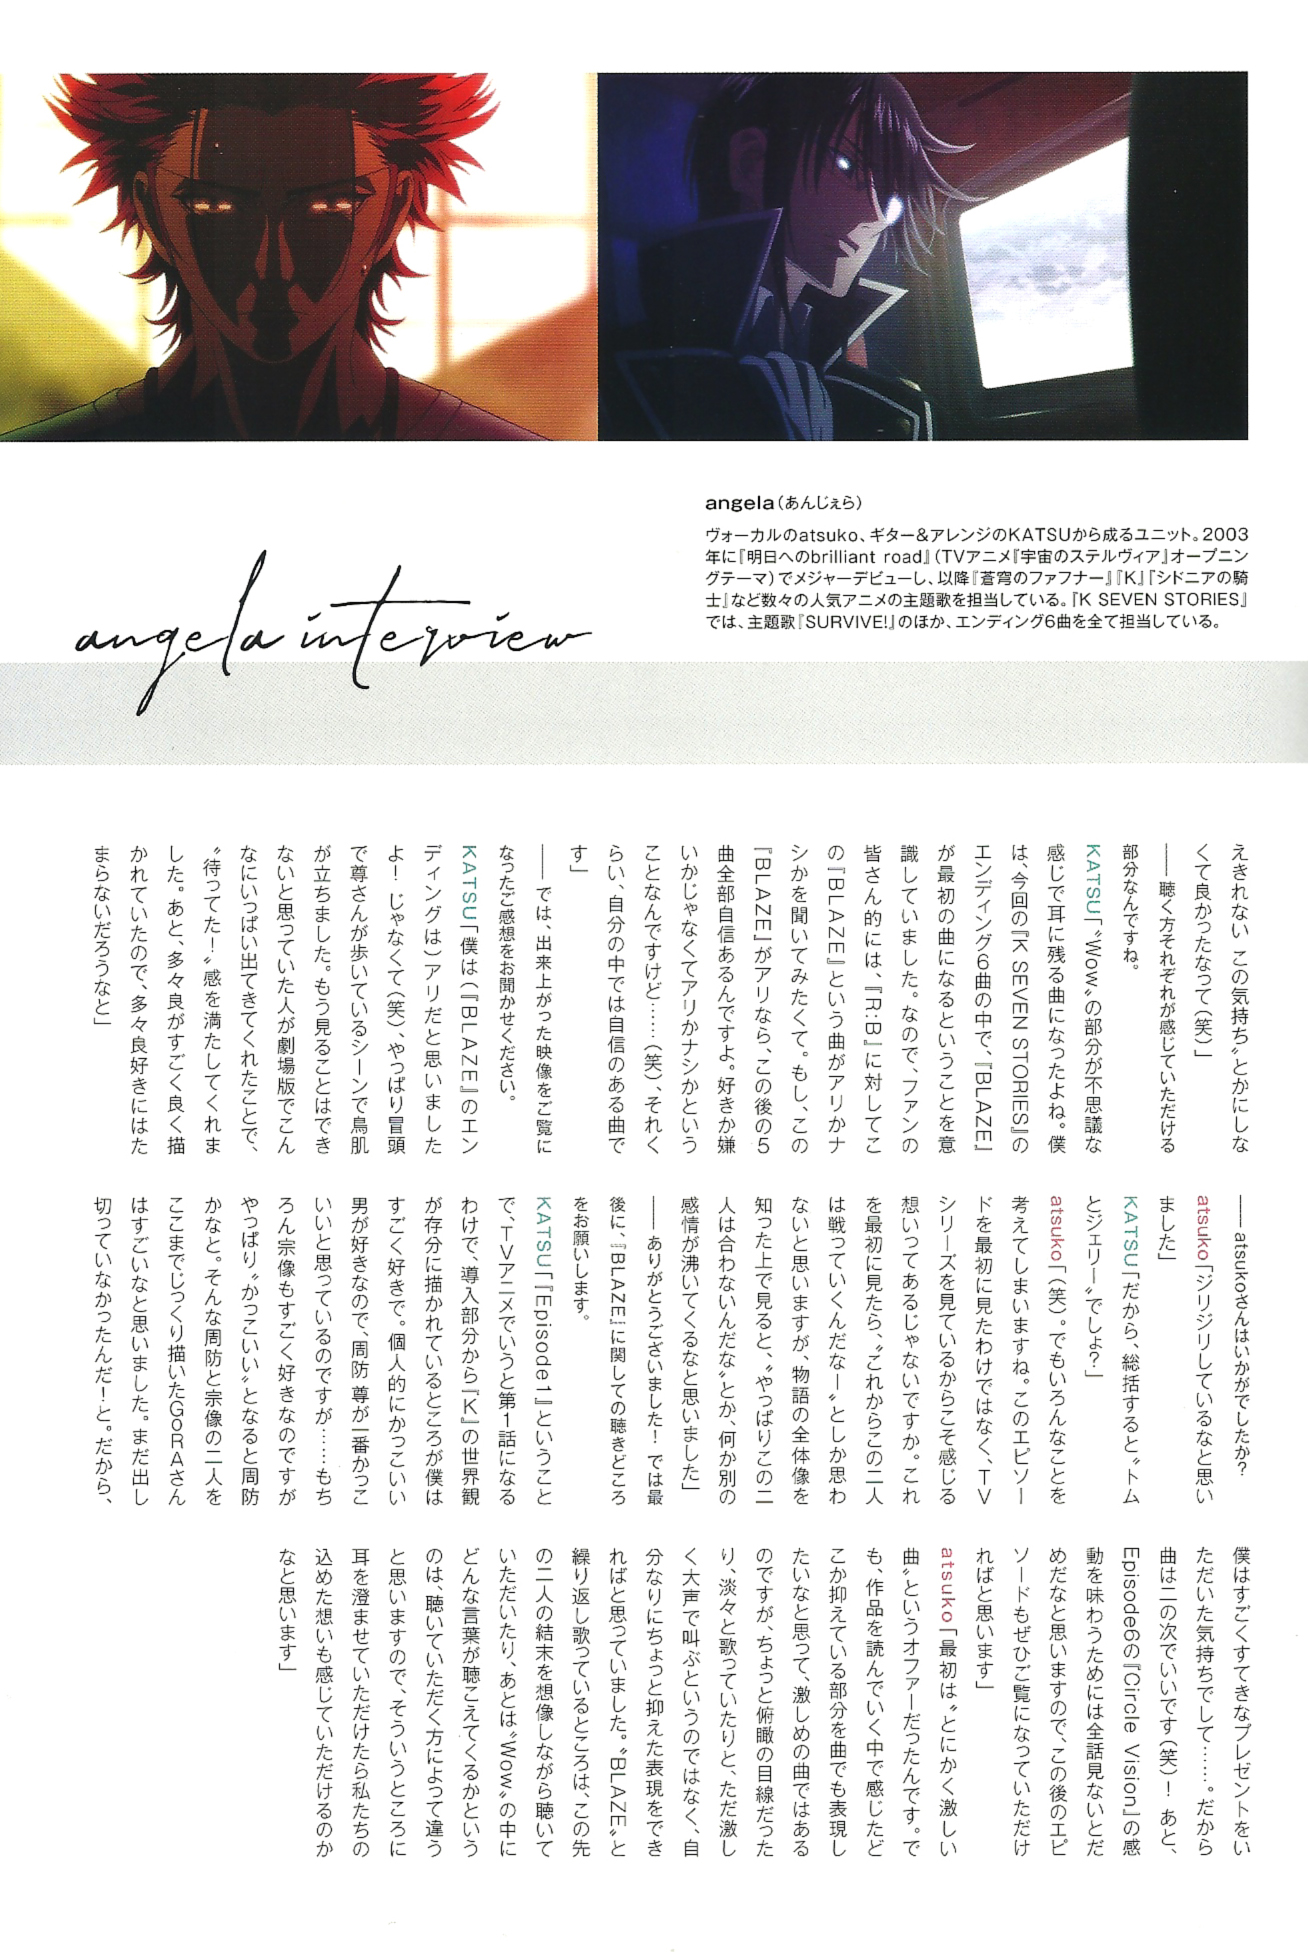 angela（あんじぇら）
ヴォーカルのatsuko、ギター&アレンジのKATSUから成るユニット。2003
年に『明日へのbrilliant road』（TVアニメ『宇宙のステルヴィア』オープニン
グテーマ）でメジャーデビューし、以降『蒼穹のファフナー』『K』『シドニアの騎
士』など数々の人気アニメの主題歌を担当している。『K SEVEN STORIES』
では、主題歌『SURVIVE!』のほか、エンディング6曲を全て担当している。
angela interview
えきれない この気持ち〟とかにしな
くて良かったなって（笑）」
―― 聴く方それぞれが感じていただける
部分なんですね。
KATSU「〝Wow〟の部分が不思議な
感じで耳に残る曲になったよね。僕
は、今回の『K SEVEN STORIES』の
エンディング6曲の中で、『BLAZE』
が最初の曲になるということを意
識していました。なので、ファンの
皆さん的には、『R:B』に対してこ
の『BLAZE』という曲がアリかナ
シかを聞いてみたくて。もし、この
『BLAZE』がアリなら、この後の5
曲全部自信あるんですよ。好きか嫌
いかじゃなくてアリかナシかという
ことなんですけど……（笑）、それく
らい、自分の中では自信のある曲で
す」
―― では、出来上がった映像をご覧に
なったご感想をお聞かせください。
KATSU「僕は（『BLAZE』のエン
ディングは）アリだと思いました
よ！ じゃなくて（笑）、やっぱり冒頭
で尊さんが歩いているシーンで鳥肌
が立ちました。もう見ることはでき
ないと思っていた人が劇場版でこん
なにいっぱい出てきてくれたことで、
〝待ってた！〟感を満たしてくれま
した。あと、多々良がすごく良く描
かれていたので、多々良好きにはた
まらないだろうなと」
―― atsukoさんはいかがでしたか？
atsuko「ジリジリしているなと思い
ました」
KATSU「だから、総括すると〝トム
とジェリー〟でしょ？」
atsuko「（笑）。でもいろんなことを
考えてしまいますね。このエピソー
ドを最初に見たわけではなく、TV
シリーズを見ているからこそ感じる
想いってあるじゃないですか。これ
を最初に見たら、〝これからこの二人
は戦っていくんだなー〟としか思わ
ないと思いますが、物語の全体像を
知った上で見ると、〝やっぱりこの二
人は合わないんだな〟とか、何か別の
感情が沸いてくるなと思いました」
―― ありがとうございました！ では最
後に、『BLAZE』に関しての聴きどころ
をお願いします。
KATSU「『Episode1』ということ
で、TVアニメでいうと第1話になる
わけで、導入部分から『K』の世界観
が存分に描かれているところが僕は
すごく好きで。個人的にかっこいい
男が好きなので、周防 尊が一番かっこ
いいと思っているのですが……もち
ろん宗像もすごく好きなのですが
やっぱり〝かっこいい〟となると周防
かなと。そんな周防と宗像の二人を
ここまでじっくり描いたGoRAさん
はすごいなと思いました。まだ出し
切っていなかったんだ！と。だから、
僕はすごくすてきなプレゼントをい
ただいた気持ちでして……。だから
曲は二の次でいいです（笑）！ あと、
Episode6の『Circle Vision』の感
動を味わうためには全話見ないとだ
めだなと思いますので、この後のエピ
ソードもぜひご覧になっていただけ
ればと思います」
atsuko「最初は〝とにかく激しい
曲〟というオファーだったんです。で
も、作品を読んでいく中で感じたど
こか抑えている部分を曲でも表現し
たいなと思って、激しめの曲ではある
のですが、ちょっと俯瞰の目線だった
り、淡々と歌っていたりと、ただ激し
く大声で叫ぶというのではなく、自
分なりにちょっと抑えた表現をでき
ればと思っていました。〝BLAZE〟と
繰り返し歌っているところは、この先
の二人の結末を想像しながら聴いて
いただいたり、あとは〝Wow〟の中に
どんな言葉が聴こえてくるかという
のは、聴いていただく方によって違う
と思いますので、そういうところに
耳を澄ませていただけたら私たちの
込めた想いも感じていただけるのか
なと思います」